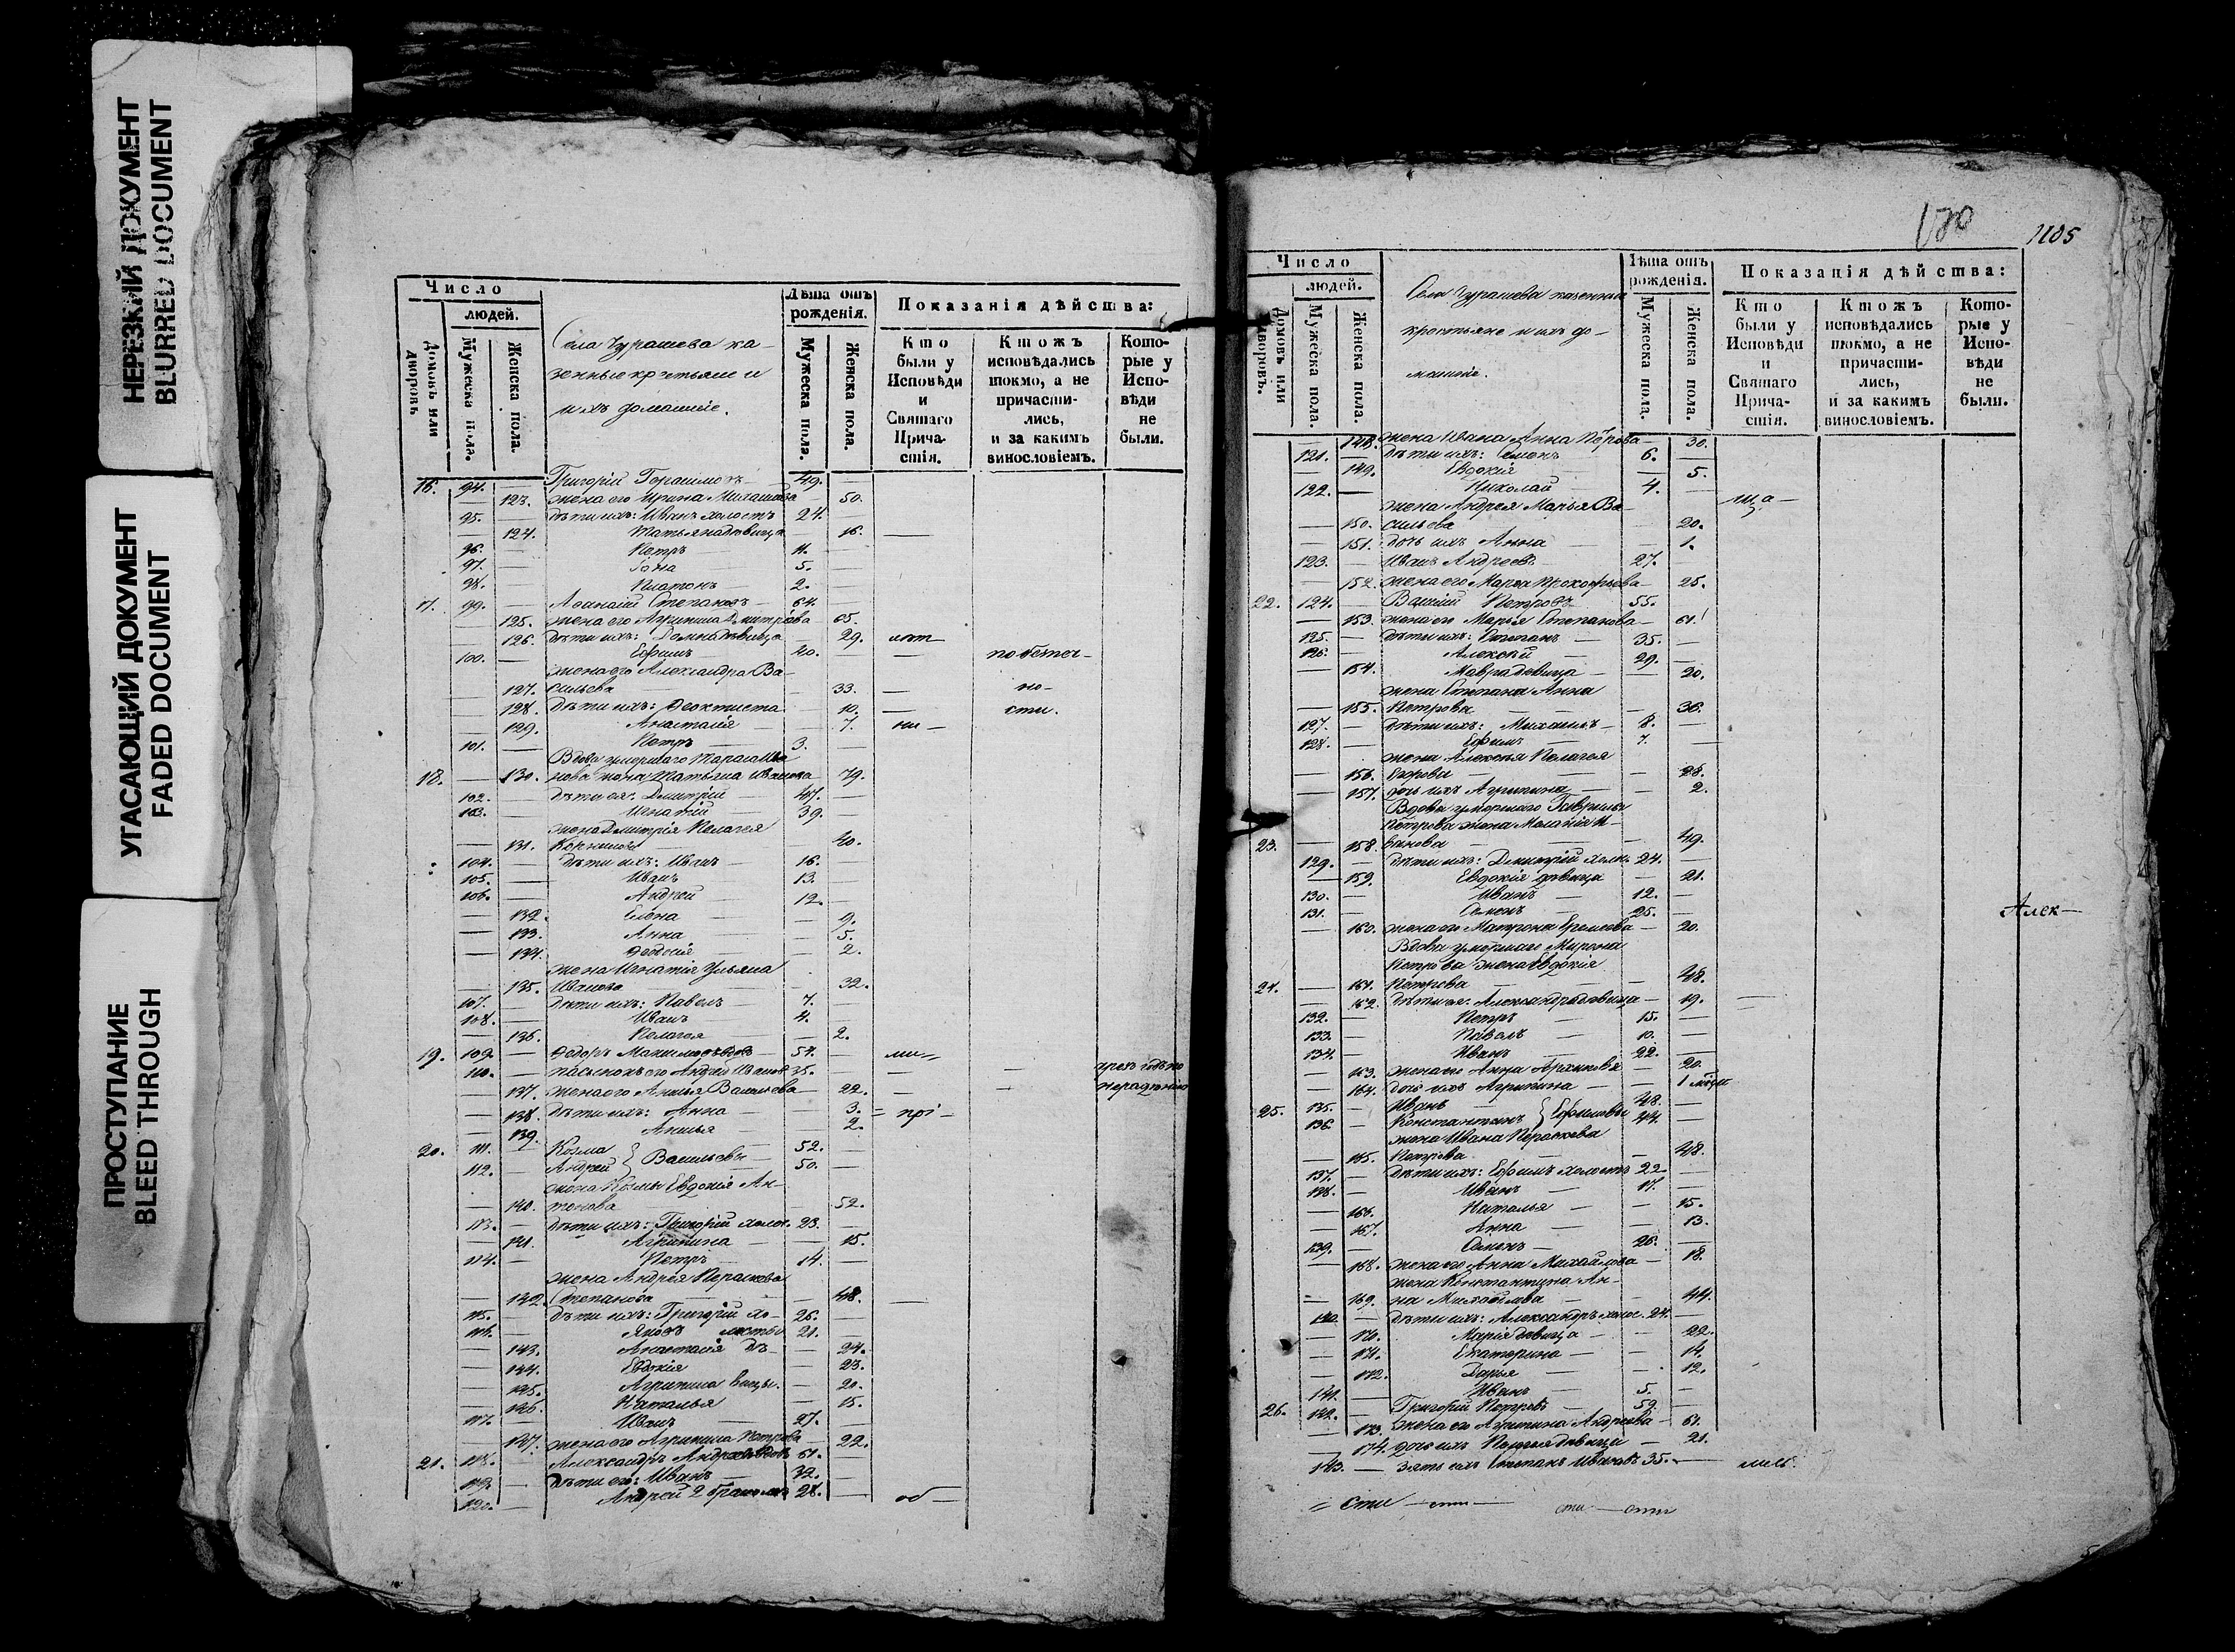 НЕРЕЗКИЙ ДОКУМЕНТ
BLURRED DOCUMENT
УГАСАЮЩИЙ ДОКУМЕНТ
FADED DOCUMENT
ПРОСТУПАНИЕ
BLEED THROUGH
Число
людей.
Домовъ или дворовъ
Мужеска пола.
Женска пола.
Села Чурашева ка-
зенные крестьяне и
ихъ домашніе.
Лѣта отъ рожденія.
Мужеска пола.
Женска пола.
Показанія дѣйства:
Кто были у Исповѣди и Святаго Прича-стія.
Ктожъ исповѣдались токмо, а не причасти-лись, и за какимъ винословіемъ.
Кото-рые у Испо-вѣди не были.
16. 94. — Григорій — 49. —
— 123. жена его Ирина — 50.
95. — дѣти ихъ: Иванъ холостъ 24.
— 124. Татьяна дѣвица — 16. —
96. — Петръ 11. —
97. — Іона 5. —
98. — Платонъ 2. —
17. 99. — Аѳанасій Степановъ 64. —
— 125. жена его Агрипина Дмитріева — 65.
— 126. дѣти ихъ: Домна дѣвица — 29.
100. — Ефимъ — 40. —
жена его Александра Ва-
— 127. сильева — 33. — но-
— 128. дѣти ихъ: Феоктиста — 10. — сти.
— 129. Анастасія — 7. ни —
101. — Петръ 3. —
Вдова умершаго Тараса Ива
18. — 130. нова жена Татьяна Иванова — 79.
102. — дѣти ея: Дмитрій 47. —
103. — Игнатій — 39. —
жена Дмитрія Пелагея
— 131. Корнилова — 40.
104. — дѣти ихъ: Иванъ — 16. —
105. — Иванъ 13. —
106. — Андрей 12. —
— 132. Елена — 9.
— 133. Анна — 5.
— 134. Федосія — 2.
жена Игнатія Ульяна
— 135. Иванова — 32.
107. — дѣти ихъ: Павелъ 7. —
108. — Иванъ 4. —
— 136. Пелагея — 2.
19. 109. — Федоръ 54. —
110. — пасынокъ его Андрей Иванов 35. — — —
— 137. жена его Анисья Васильева — 22. — — нерадѣнію
— 138. дѣти ихъ: Анна — 3. = прі —
— 139. Анисья — 2.
20. 111. — Козма } Васильевы 52. —
112. — Андрей 50. —
жена Козмы Евдокія Ан-
— 140. тонова — 52.
113. — дѣти ихъ: Григорій холос. 23. —
— 141. Агрипина — 15.
114. — Петръ 14. —
жена Андрея Параскева
— 142. Степанова — 48. —
115. — дѣти ихъ: Григорій хо- 26. —
116. — Яковъ лосты 21. —
— 143. Анастасія дѣ- — 24.
— 144. Евдокія — 23.
— 145. Агрипина вицы. — 20.
— 146. Наталья — 15.
117. — Иванъ 27. —
— 147. жена его Агрипина Петрова — 22.
21. 118. — Александръ 61. —
119. — дѣти его: Иванъ 32. —
120. — Андрей 2 28. — об —
120
1105
Число
людей.
Домовъ или дворовъ.
Мужеска пола.
Женска пола.
Села Чурашева казенные
крестьяне и ихъ до-
машніе.
Лѣта отъ рожденія.
Мужеска пола.
Женска пола.
Показанія дѣйства:
Кто были у Исповѣди и Святаго Прича-стія.
Ктожъ исповѣдались токмо, а не причасти-лись, и за какимъ винословіемъ.
Кото-рые у Испо-вѣди не были.
— 148. жена Ивана Анна Петрова — 30.
121. — дѣти ихъ: Семенъ 6. —
— 149. Евдокія — 5.
122. — Николай — 4. —
жена Андрея Марья Ва- ща —
— 150. сильева — 20.
— 151. дочь ихъ Анна — 1.
123. — Иванъ Андреевъ 27. —
— 152. жена его Марья Прокофьева — 25.
22. 124. — Василій Петровъ 55. —
— 153. жена его Марья Степанова — 61.
125. — дѣти ихъ: Степанъ — 35. —
126. — Алексѣй — 29. —
— 154. Мавра дѣвица — 20.
жена Степана Анна
— 155. Петрова — 36.
127. — дѣти ихъ: Михаилъ — 8. —
128. — Ефимъ 7. —
жена Алексѣя Пелагея
— 156. Егорова — 28.
— 157. дочь ихъ Агрипина — 2.
Вдова умершаго Гаврилы
Петрова жена Меланія И-
23. — 158. ванова — 49.
129. — дѣти ихъ: Дмитрій холос. 24. —
— 159. Евдокія дѣвица — 21.
130. — Иванъ — 12. —
131. — Семенъ — 25. — Алек—
— 160. жена его Матрона Еремеева — 20.
Вдова умершаго Мирона
Петрова жена Евдокія
24. — 161. Петрова — 48.
— 162. дѣти ея: Александра дѣвица — 19. —
132. — Петръ — 15. —
133. — Павелъ — 10. —
134. — Иванъ — 22. —
— 163. жена его Анна Архипова — 20.
— 164. дочь ихъ Агрипина — 1
25. 135. — Иванъ } Ефимовы 48. —
136. — Константинъ 44. —
жена Ивана Параскева
— 165. Петрова — 48.
137. — дѣти ихъ: Ефимъ холостъ 22. —
138. — Иванъ — 17. —
— 166. Наталья — 15.
— 167. Анна — 13.
139. — Семенъ — 26. —
— 168. жена его Анна Михайлова — 18.
жена Константина Ан-
— 169. на Михайлова — 44.
140. — дѣти ихъ: Александръ холос. 24. —
— 170. Марія дѣвица — 22.
— 171. Екатерина — 14.
— 172. Дарья — 12.
141. — Иванъ — 5. —
26. 142. — Григорій Петровъ — 59. —
— 173. жена его Агрипина Андреева — 61.
— 174. дочь ихъ дѣвица — 21.
143. — зять ихъ Степанъ Ивановъ 35. — лись.
= сти — сти — сти — сти